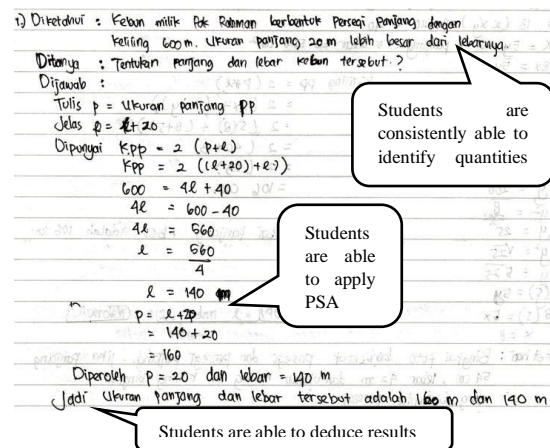 1.) Diketahui : Kebun milik Pak Rahman berbentuk Persegi Panjang dengan
keliling 600 m. Ukuran panjang 20 m lebih besar dari lebarnya
Ditanya : Tentukan panjang dan lebar kebun tersebut ?
Dijawab :
Tulis p = Ukuran panjang PP
Jelas p = l + 20
Dipunyai Kpp = 2 (p+l)
Kpp = 2 ((l+20)+l)
600 = 4l + 40
4l = 600 - 40
4l = 560
l = 560
4
l = 140 m
p = l + 20
= 140 + 20
= 160
Diperoleh p = 20 dan lebar = 140 m
Jadi Ukuran Panjang dan lebar tersebut adalah 160 m dan 140 m
Students are
consistently able to
identify quantities
Students
are able
to apply
PSA
Students are able to deduce results